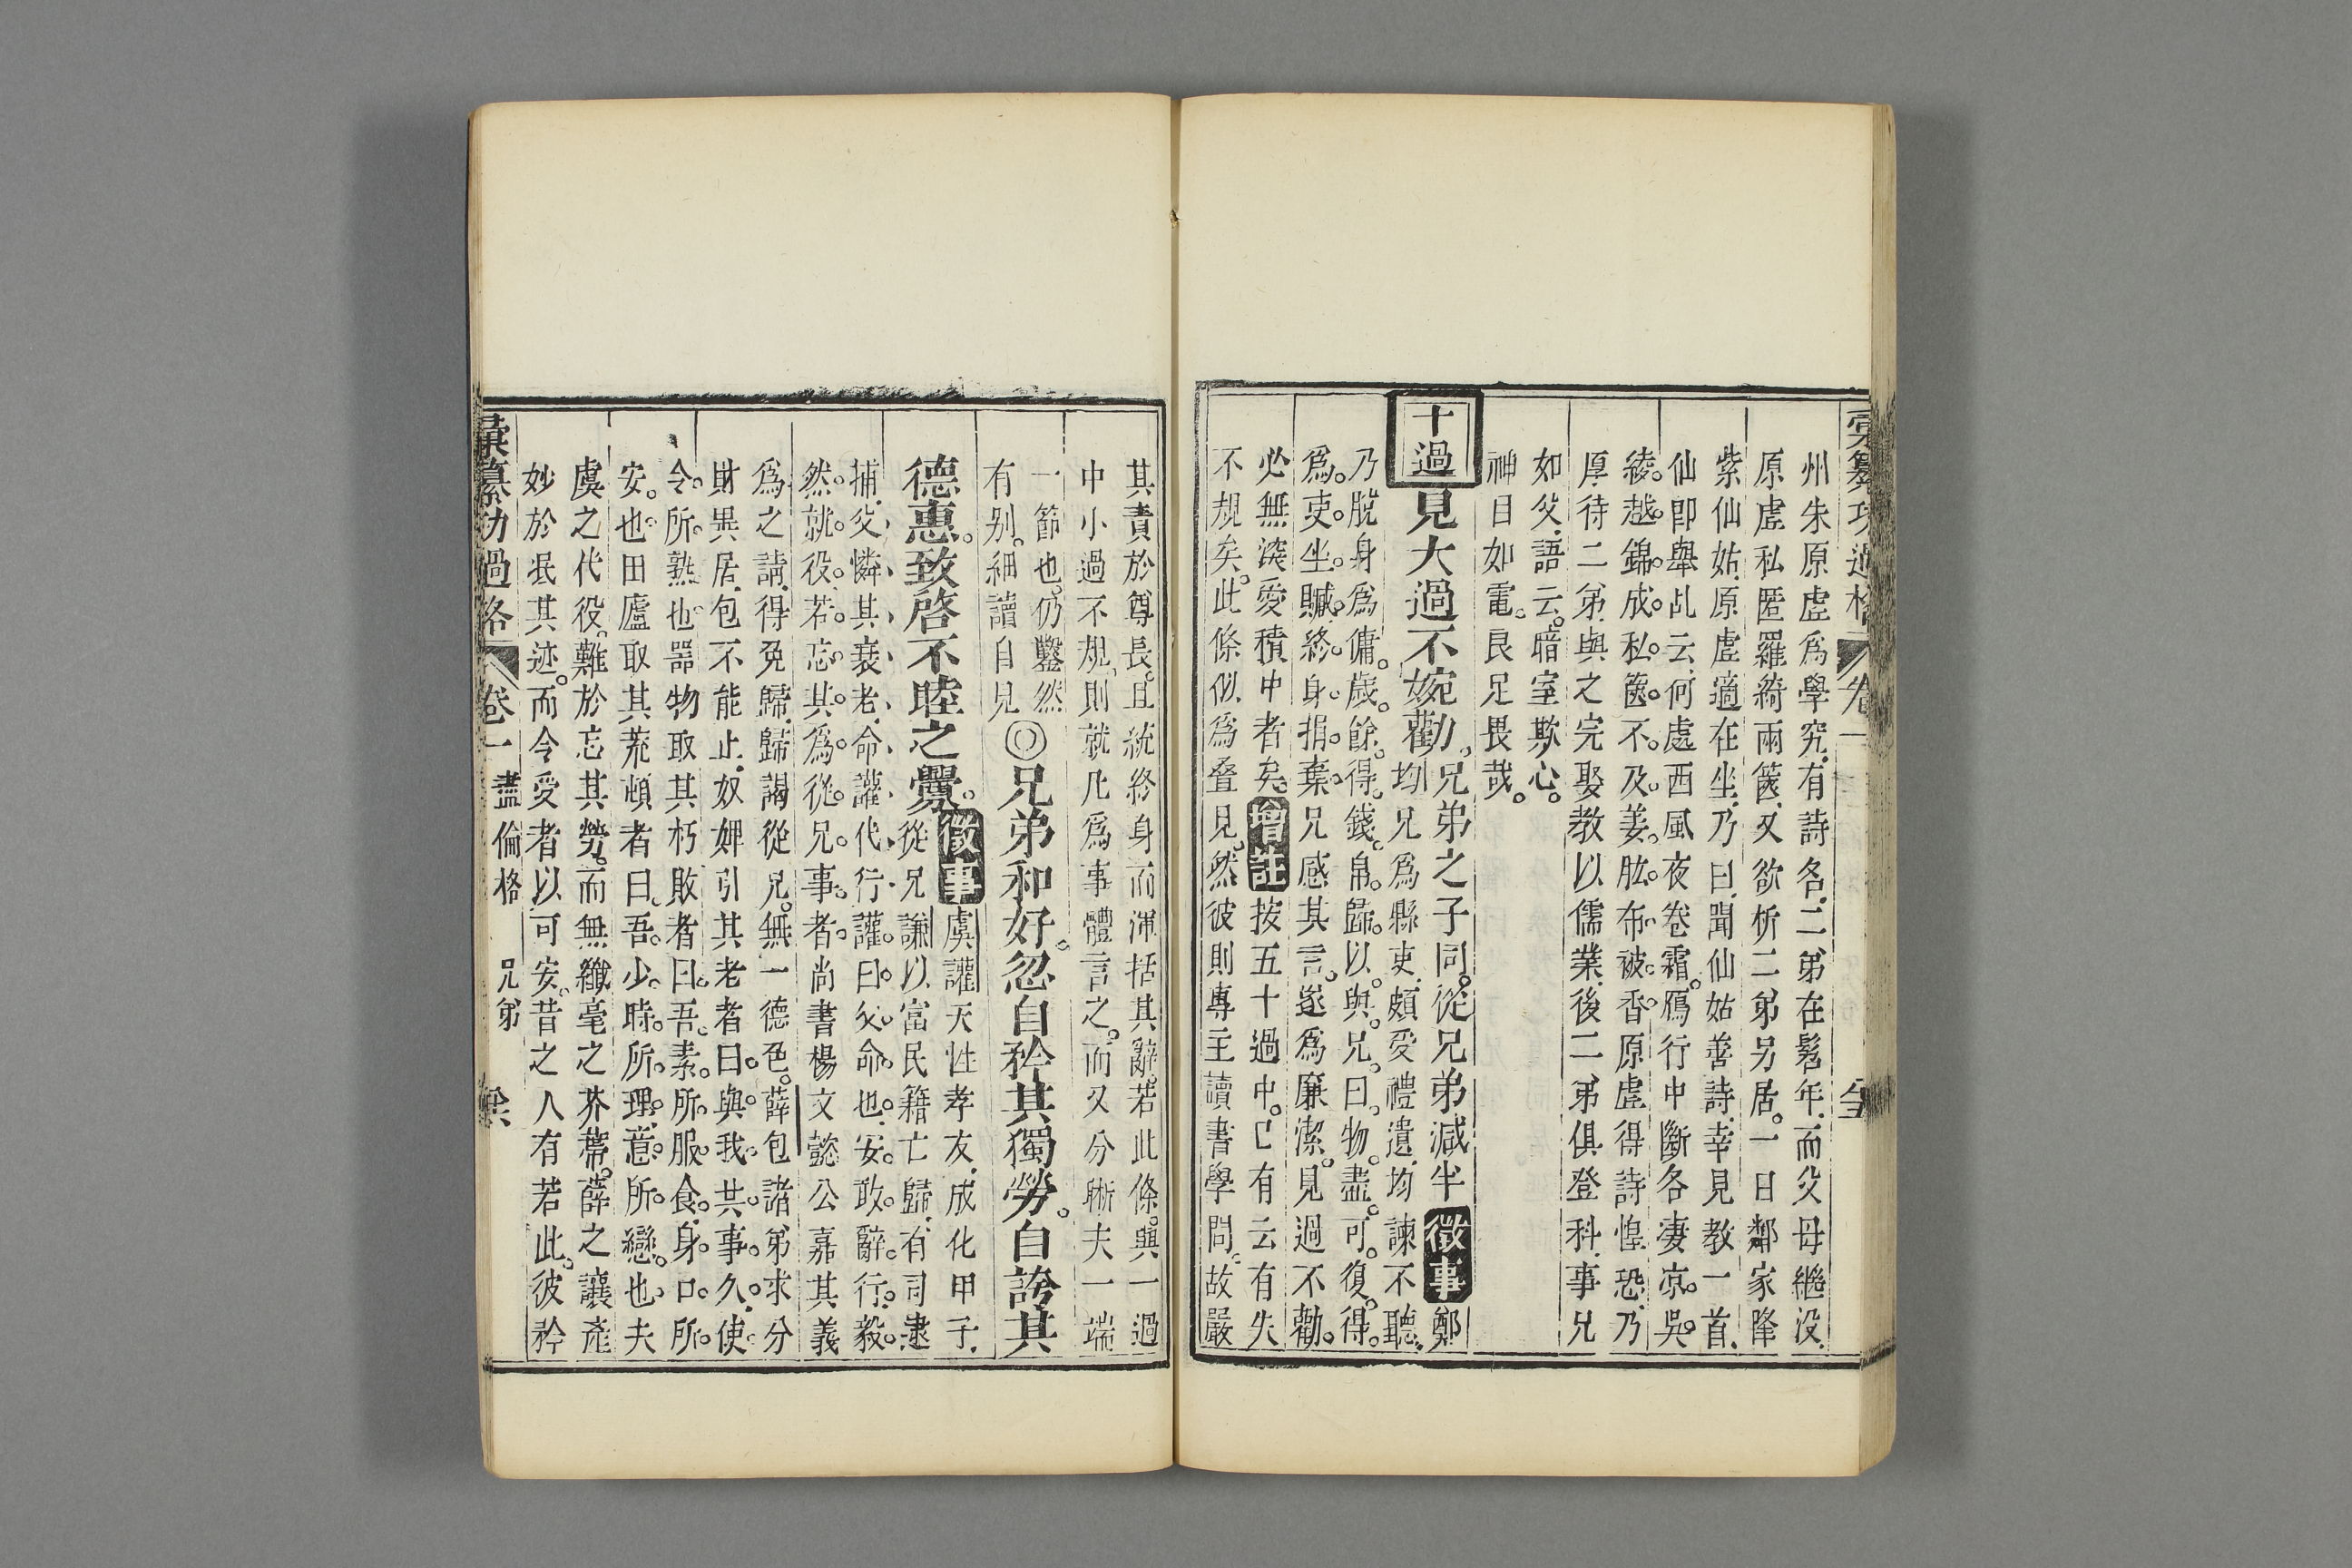 彙纂功過格
卷一
州朱原虛爲學究有詩名二弟在髫年而父母繼没
原虛私匿羅綺兩篋又欲析二弟另居一日鄰家降
紫仙姑原虛適在坐乃曰聞仙姑善詩幸見教一首
仙卽舉乩云何處西風夜卷霜鴈行中斷各凄凉吳
綾越錦成私篋不及姜肱布被香原虛得詩惶恐乃
厚待二弟與之完娶教以儒業後二弟俱登科事兄
如父語云暗室欺心
神目如電艮足畏哉
十過見大過不婉勸兄弟之子同從兄弟減半徵事鄭
均兄爲縣吏頗受禮遺均諫不聽
乃脫身爲傭歲餘得錢帛歸以與兄曰物盡可復得
爲吏坐贓終身捐棄兄感其言遂爲廉潔見過不勸
必無深愛積中者矣增註按五十過中已有云有失
不規矣此條似爲疊見然彼則專主讀書學問故嚴
其責於尊長且統終身而渾括其辭若此條與一過
中小過不規則就此爲事體言之而又分晰夫一端
一節也仍鑿然
有别細讀自見◎兄弟和好忽自矜其獨勞自誇其
德惠致啓不睦之釁徵事虞讙天性孝友成化甲子
從兄謙以富民籍亡歸有司逮
捕父憐其衰老命讙代行讙曰父命也安敢辭行毅
然就役若忘其爲從兄事者尚書楊文懿公嘉其義
爲之請得免歸歸謁從兄無一德色薛包諸弟求分
財異居包不能止奴婢引其老者曰與我共事久使
令所熟也器物取其朽敗者曰吾素所服食身口所
安也田廬取其荒頓者曰吾少時所理意所戀也夫
虞之代役難於忘其勞而無纖毫之芥蒂薛之讓產
妙於泯其迹而令受者以可安昔之人有若此彼矜
彙纂功過格
卷一
盡倫格
兄弟